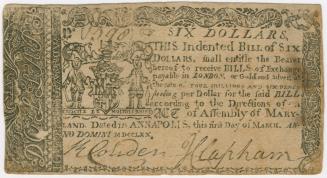 SIX DOLLARS.
THIS Indented Bill of SIX
DOLLARS, shall entitle the Bearer
hereof to receive BILLS of Exchange
payable in LONDON, or Gold and Silver, at
the Rate of FOUR SHILLINGS AND SIX PENCE
Sterling per Dollar for the said BILL,
according to the Directions of an
ACT of Assembly of MARY-
LAND. Dated in ANNAPOLIS, this first Day of MARCH, AN-
NO DOMINI MDCCLXX.
J. Clapham